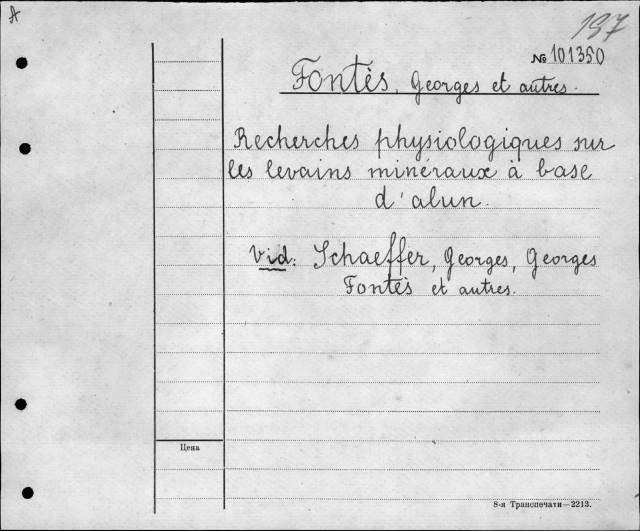 A
197
№ 101350
Fontès, Georges et autres.
Recherches physiologiques sur
les levains minéraux à base
d'alun.
Vid: Schaeffer, Georges, Georges
Fontès et autres.
Цена
8-я Транспечати—2213.